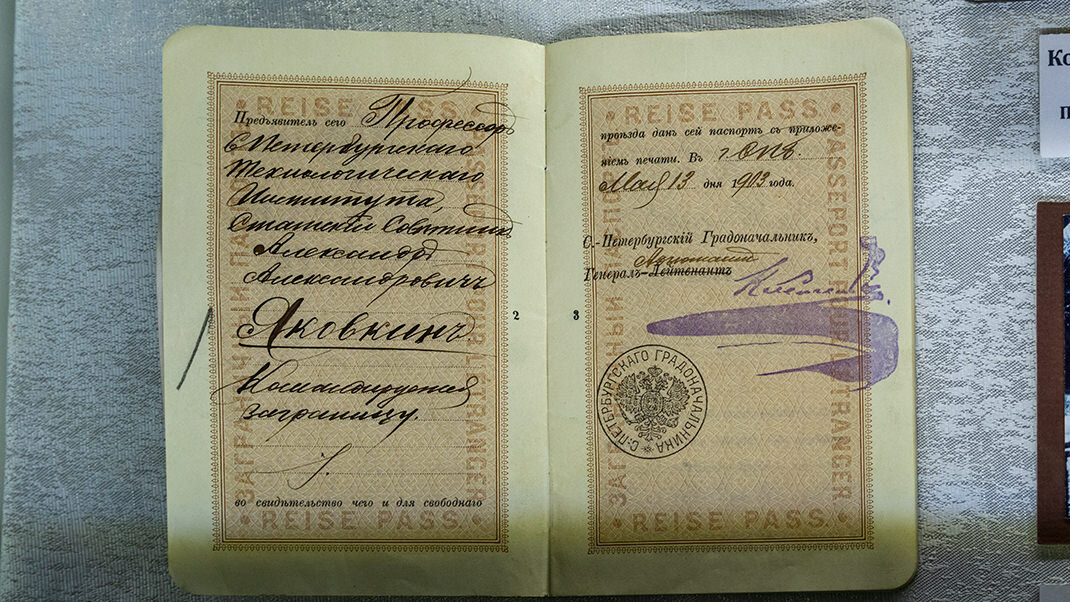 REISE PASS
Предъявитель сего Профессоръ
С Петербургскаго
Технологическаго
Института,
Статскій Совѣтникъ
Александръ
Александровичъ
Яковкинъ
Командируется
заграницу.
во свидѣтельство чего и для свободнаго
REISE PASS
ЗАГРАНИЧНЫЙ ПАСПОРТЪ
PASSEPORT POUR L'ÉTRANGER
2
REISE PASS
проѣзда данъ сей паспортъ съ приложе-
ніемъ печати. Въ г. СПб.
Мая 13 дня 1903 года.
С.-Петербургскій Градоначальникъ,
Генералъ-Лейтенантъ
С.-ПЕТЕРБУРГСКАГО ГРАДОНАЧАЛЬНИКА
REISE PASS
ЗАГРАНИЧНЫЙ ПАСПОРТЪ
PASSEPORT POUR L'ÉTRANGER
3
Ко
п